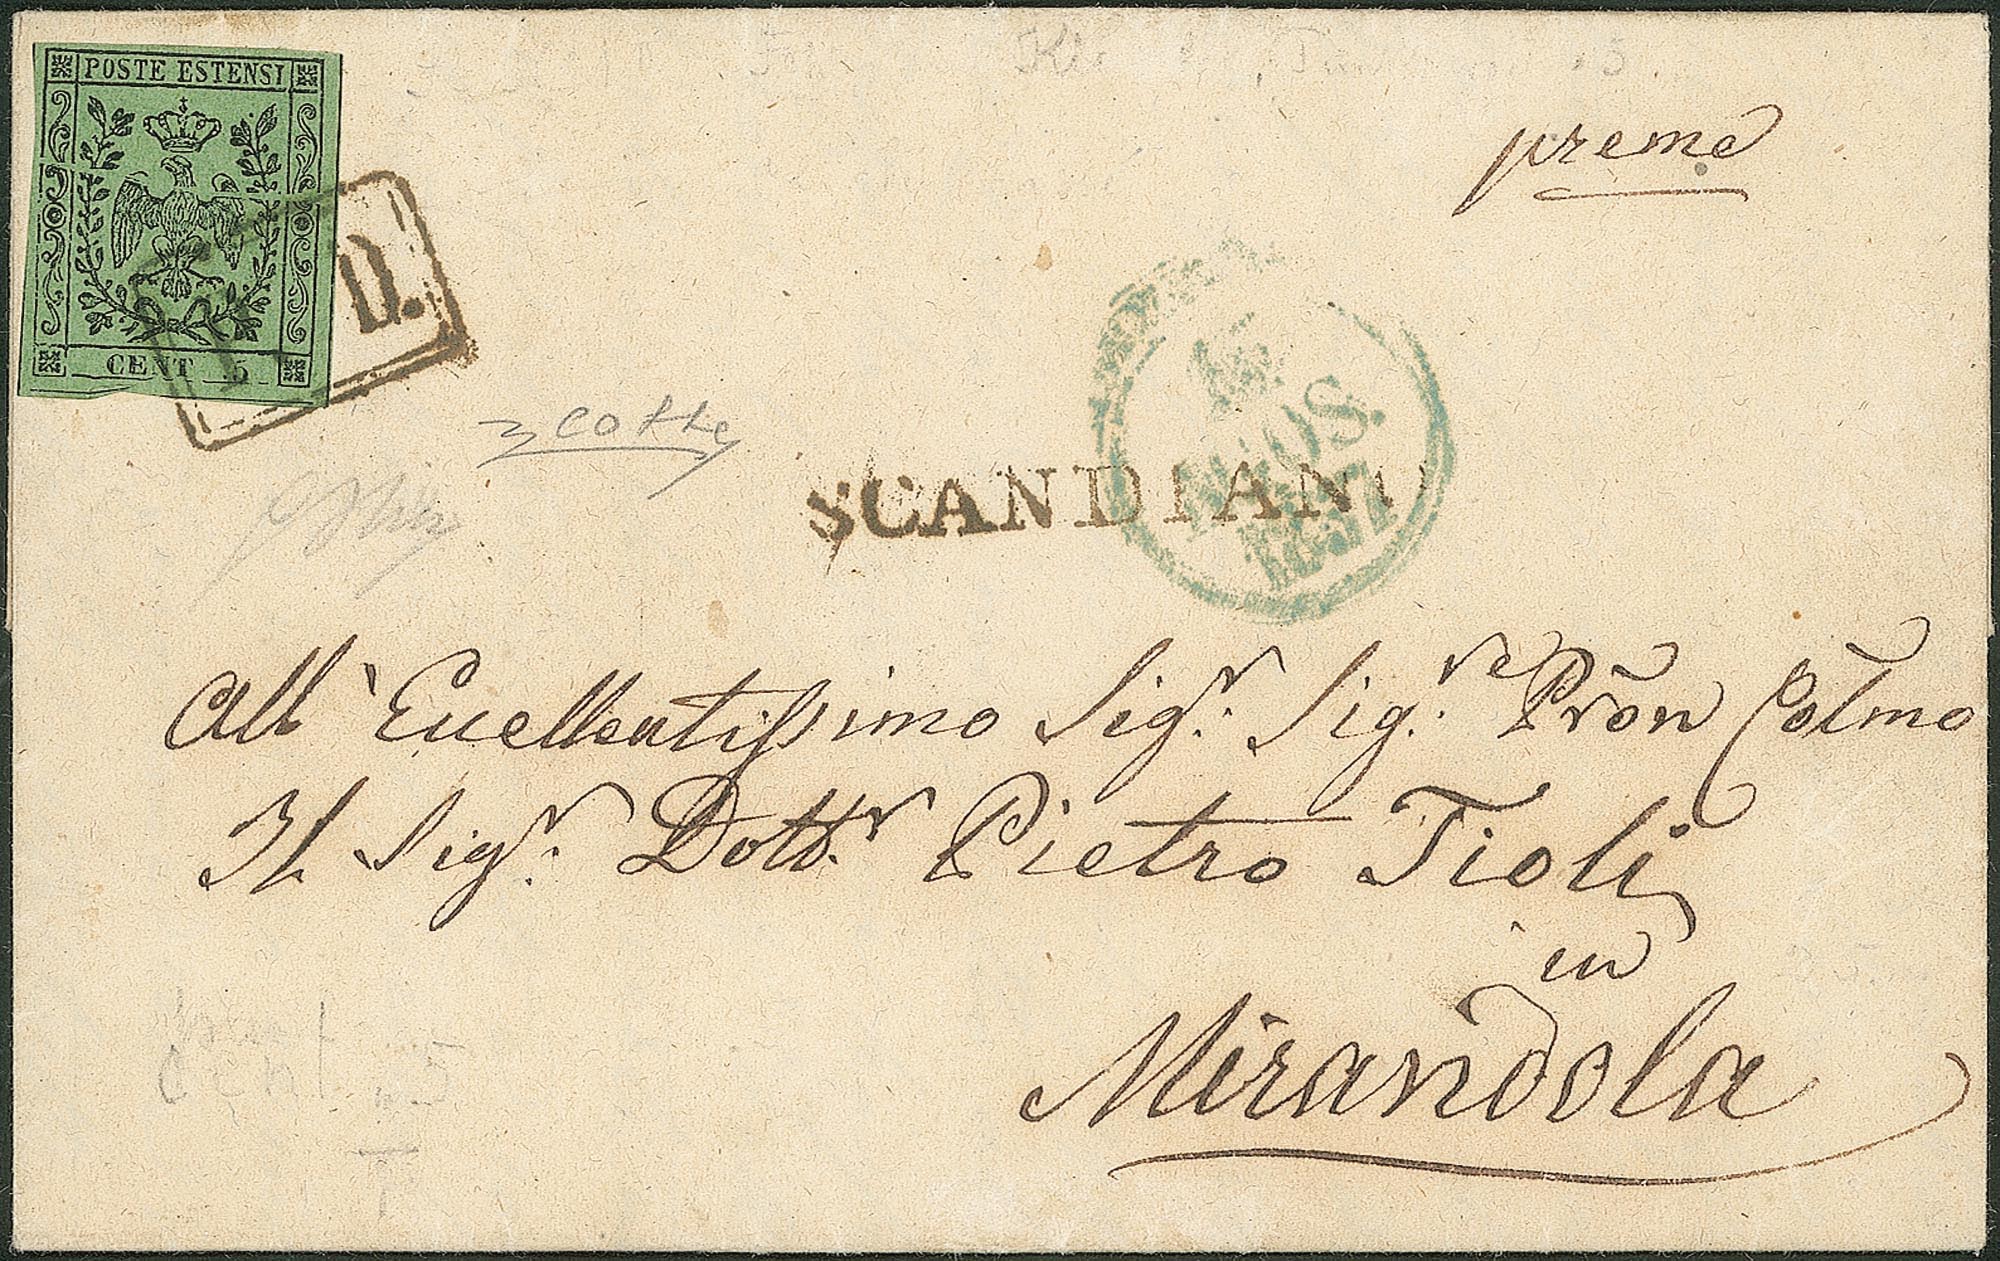 POSTE ESTENSI
preme
D.
CENT 5
SCANDIANO
1857
All' Eccellentissimo Sigr. Sig.re Prõn Colmo
Il Sigr. Dottr. Pietro Tioli
in
Mirandola
Cent 5